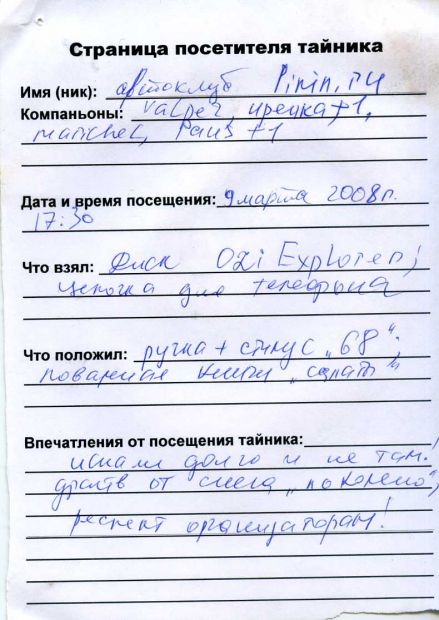 Страница посетителя тайника
Имя (ник): автоклуб Pinin.ru
Компаньоны: Valper, иречка+1,
manchel, Paus +1
Дата и время посещения: 9 марта 2008г.
17:30
Что взял: Диск OziExplorer;
цепочка для телефона
Что положил: ручка + стилус „68“,
поваренная книга „салаты“
Впечатления от посещения тайника:
искали долго и не там.
от снега „по колено“,
респект организаторам!